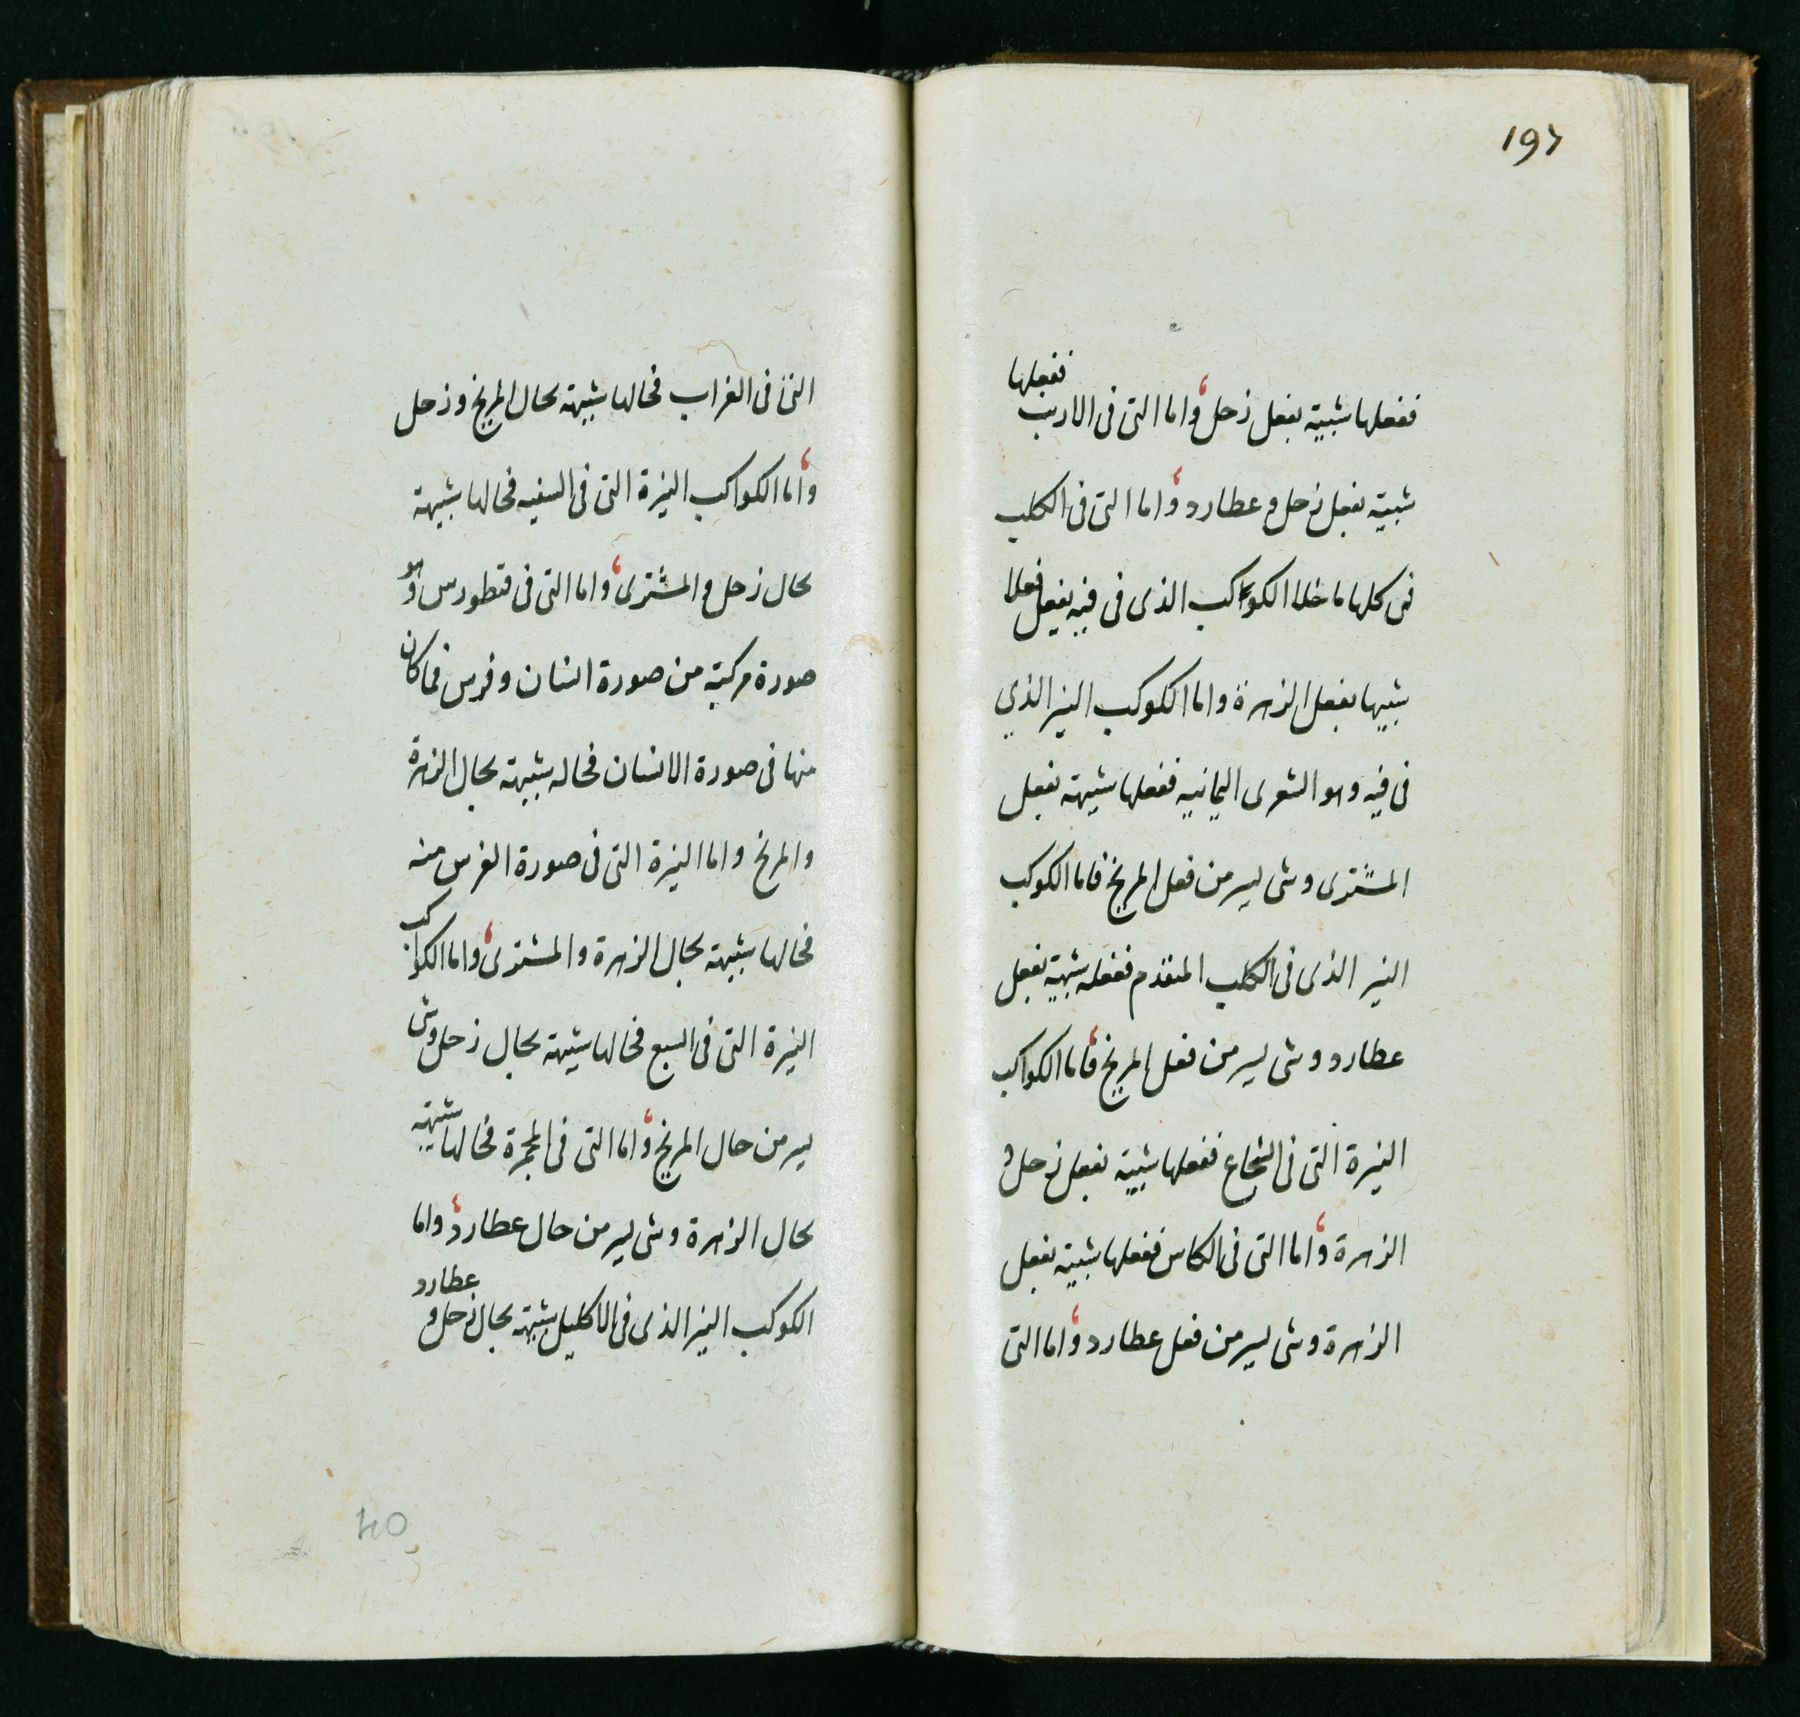 197
ففعلها شبيهة بفعل زحل واما التى فى الارنب ففعلها
شبيهة بفعل زحل وعطارد واما التى فى الكلب
فهى كلها ما خلا الكوكب الذى فى فيه يفعل فعلا
شبيها بفعل الزهرة واما الكوكب النير الذي
فى فيه وهو الشعرى اليمانيه ففعلها شبيهة بفعل
المشترى وشى يسير من فعل المريخ فاما الكوكب
النير الذى فى الكلب المتقدم ففعله شبيهة بفعل
عطارد وشى يسير من فعل المريخ فاما الكواكب
النيرة التى فى الشجاع ففعلها شبيهة بفعل زحل و
الزهرة واما التى فى الكاس ففعلها شبيهة بفعل
الزهرة وشى يسير من فعل عطارد واما التى
التى فى الغراب فحالها شبيهة بحال المريخ وزحل
واما الكواكب النيرة التى فى السفينه فحالها شبيهة
بحال زحل والمشترى واما التى فى قنطورس وهو
صورة مركبة من صورة انسان وفرس فما كان
منها فى صورة الانسان فحاله شبيهة بحال الزهرة
والمريخ واما النيرة التى فى صورة الفرس منه
فحالها شبيهة بحال الزهرة والمشترى واما الكواكب
النيرة التى فى السبع فحالها شبيهة بحال زحل وشى
يسير من حال المريخ واما التى فى المجمرة فحالها شبيهة
بحال الزهرة وشى يسير من حال عطارد واما
الكوكب النير الذى فى الاكليل شبيهة بحال زحل وعطارد